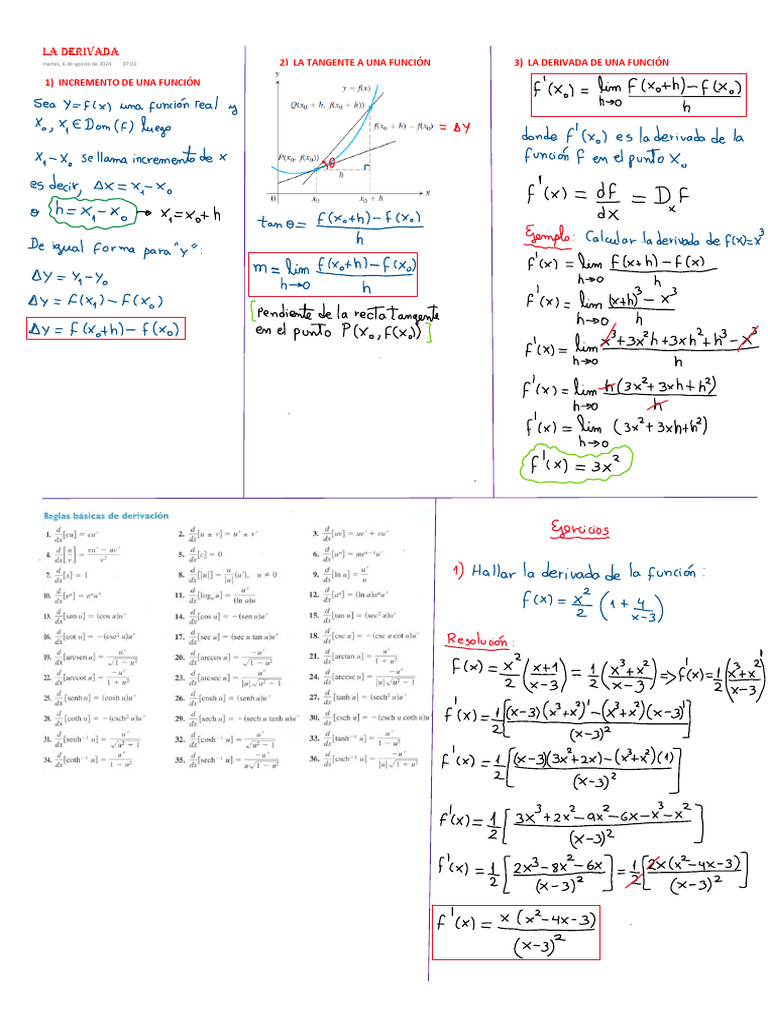 LA DERIVADA
martes, 6 de agosto de 2024 07:33
1) INCREMENTO DE UNA FUNCIÓN
Sea Y=f(x) una función real y
x₀, x₁ ∈ Dom(f) luego
x₁-x₀ se llama incremento de x
es decir, Δx = x₁-x₀
o h = x₁-x₀ → x₁=x₀+h
De igual forma para "y":
Δy = y₁-y₀
Δy = f(x₁)-f(x₀)
Δy = f(x₀+h)-f(x₀)
2) LA TANGENTE A UNA FUNCIÓN
y
y = f(x)
Q(x₀ + h, f(x₀ + h))
f(x₀ + h) − f(x₀) = Δy
P(x₀, f(x₀))
θ
h
0 x₀ x₀ + h x
tan θ = (f(x₀+h)-f(x₀))/h
m = lim h→0 (f(x₀+h)-f(x₀))/h
[Pendiente de la recta tangente
en el punto P(x₀, f(x₀))]
3) LA DERIVADA DE UNA FUNCIÓN
f'(x₀) = lim h→0 (f(x₀+h)-f(x₀))/h
donde f'(x₀) es la derivada de la
función f en el punto x₀
f'(x) = df/dx = Dₓf
Ejemplo: Calcular la derivada de f(x)=x³
f'(x) = lim h→0 (f(x+h)-f(x))/h
f'(x) = lim h→0 ((x+h)³-x³)/h
f'(x) = lim h→0 (x³+3x²h+3xh²+h³-x³)/h
f'(x) = lim h→0 h(3x²+3xh+h²)/h
f'(x) = lim h→0 (3x²+3xh+h²)
f'(x) = 3x²
Reglas básicas de derivación
1. d/dx[cu] = cu' 2. d/dx[u ± v] = u' ± v' 3. d/dx[uv] = uv' + vu'
4. d/dx[u/v] = (vu' − uv')/v² 5. d/dx[c] = 0 6. d/dx[uⁿ] = nuⁿ⁻¹u'
7. d/dx[x] = 1 8. d/dx[|u|] = u/|u| (u'), u ≠ 0 9. d/dx[ln u] = u'/u
10. d/dx[eᵘ] = eᵘu' 11. d/dx[logₐ u] = u'/((ln a)u) 12. d/dx[aᵘ] = (ln a)aᵘu'
13. d/dx[sen u] = (cos u)u' 14. d/dx[cos u] = −(sen u)u' 15. d/dx[tan u] = (sec² u)u'
16. d/dx[cot u] = −(csc² u)u' 17. d/dx[sec u] = (sec u tan u)u' 18. d/dx[csc u] = −(csc u cot u)u'
19. d/dx[arcsen u] = u'/√(1 − u²) 20. d/dx[arccos u] = −u'/√(1 − u²) 21. d/dx[arctan u] = u'/(1 + u²)
22. d/dx[arccot u] = −u'/(1 + u²) 23. d/dx[arcsec u] = u'/(|u|√(u² − 1)) 24. d/dx[arccsc u] = −u'/(|u|√(u² − 1))
25. d/dx[senh u] = (cosh u)u' 26. d/dx[cosh u] = (senh u)u' 27. d/dx[tanh u] = (sech² u)u'
28. d/dx[coth u] = −(csch² u)u' 29. d/dx[sech u] = −(sech u tanh u)u' 30. d/dx[csch u] = −(csch u coth u)u'
31. d/dx[senh⁻¹ u] = u'/√(u² + 1) 32. d/dx[cosh⁻¹ u] = u'/√(u² − 1) 33. d/dx[tanh⁻¹ u] = u'/(1 − u²)
34. d/dx[coth⁻¹ u] = u'/(1 − u²) 35. d/dx[sech⁻¹ u] = −u'/(u√(1 − u²)) 36. d/dx[csch⁻¹ u] = −u'/(|u|√(1 + u²))
Ejercicios
1) Hallar la derivada de la función:
f(x) = x²/2 (1 + 4/(x-3))
Resolución:
f(x) = x²/2 ((x+1)/(x-3)) = 1/2 ((x³+x²)/(x-3)) ⇒ f'(x) = 1/2 ((x³+x²)/(x-3))'
f'(x) = 1/2 [((x-3)(x³+x²)'-(x³+x²)(x-3)')/(x-3)²]
f'(x) = 1/2 [((x-3)(3x²+2x)-(x³+x²)(1))/(x-3)²]
f'(x) = 1/2 [(3x³+2x²-9x²-6x-x³-x²)/(x-3)²]
f'(x) = 1/2 [(2x³-8x²-6x)/(x-3)²] = 1/2 [2x(x²-4x-3)/(x-3)²]
f'(x) = x(x²-4x-3)/(x-3)²